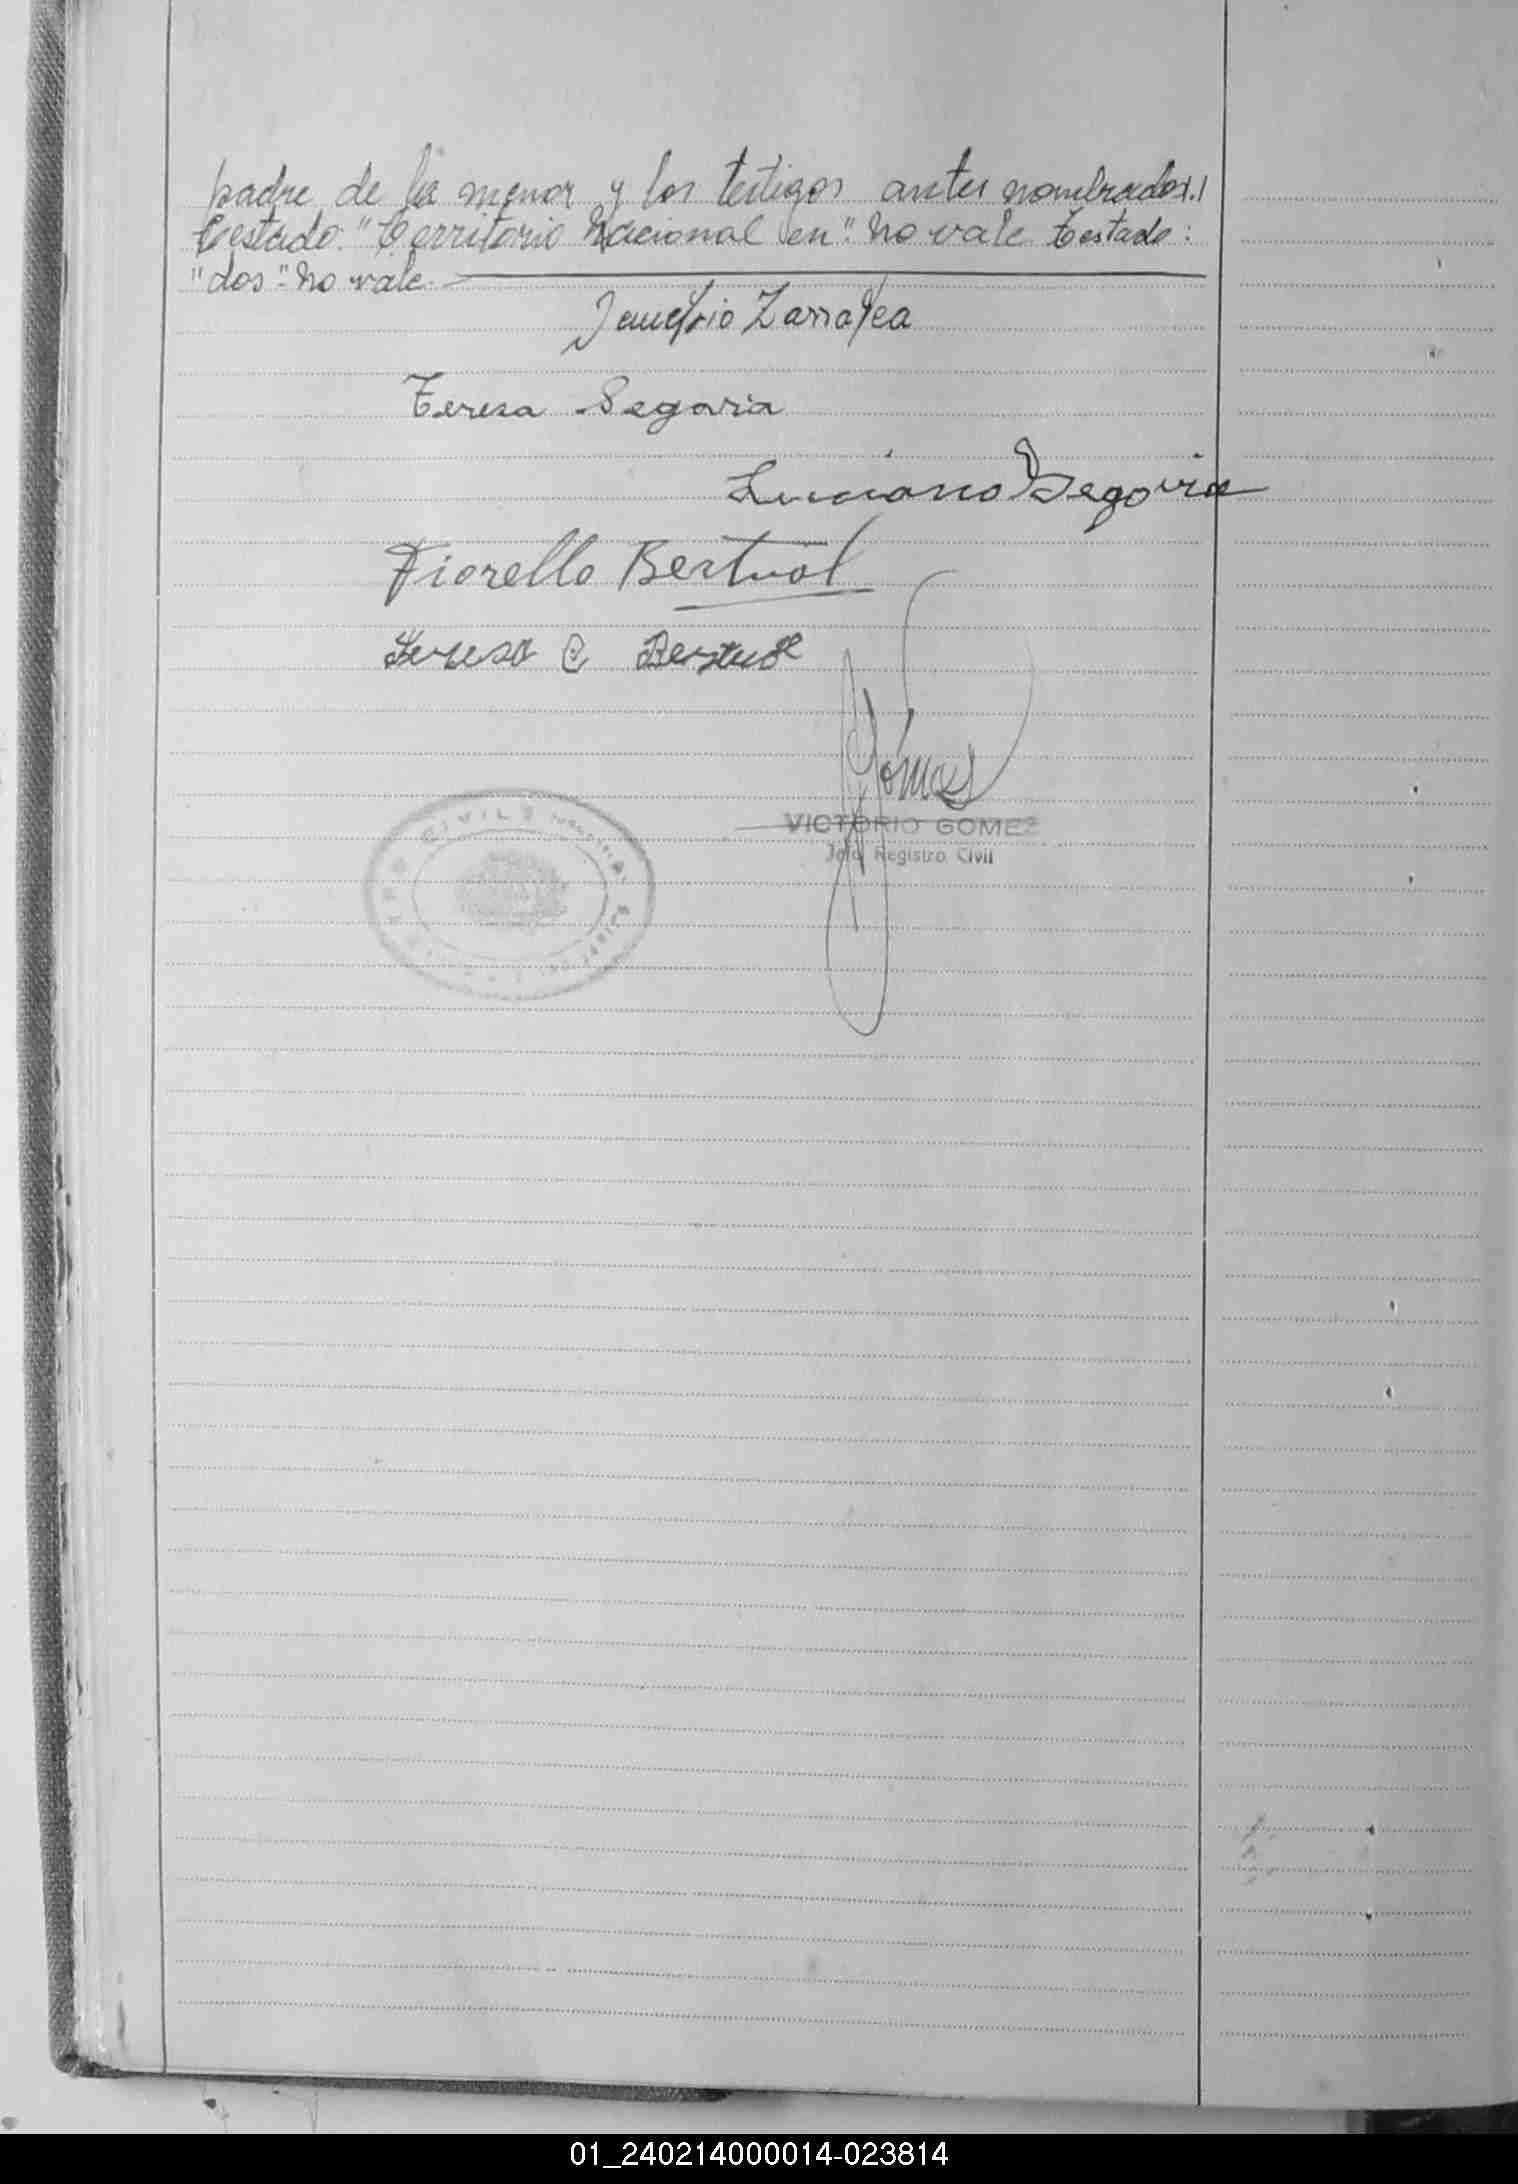 padre de la menor y los testigos antes nombrados.
Testado: "Territorio Nacional en": no vale Testado:
"dos": no vale.
Zarratea
Teresa Segovia
Luciano Segovia
Fiorello Bertuol
Teresa C Bertuol
Gómez
VICTORIO GOMEZ
Jefe Registro Civil
CIVIL
01_240214000014-023814